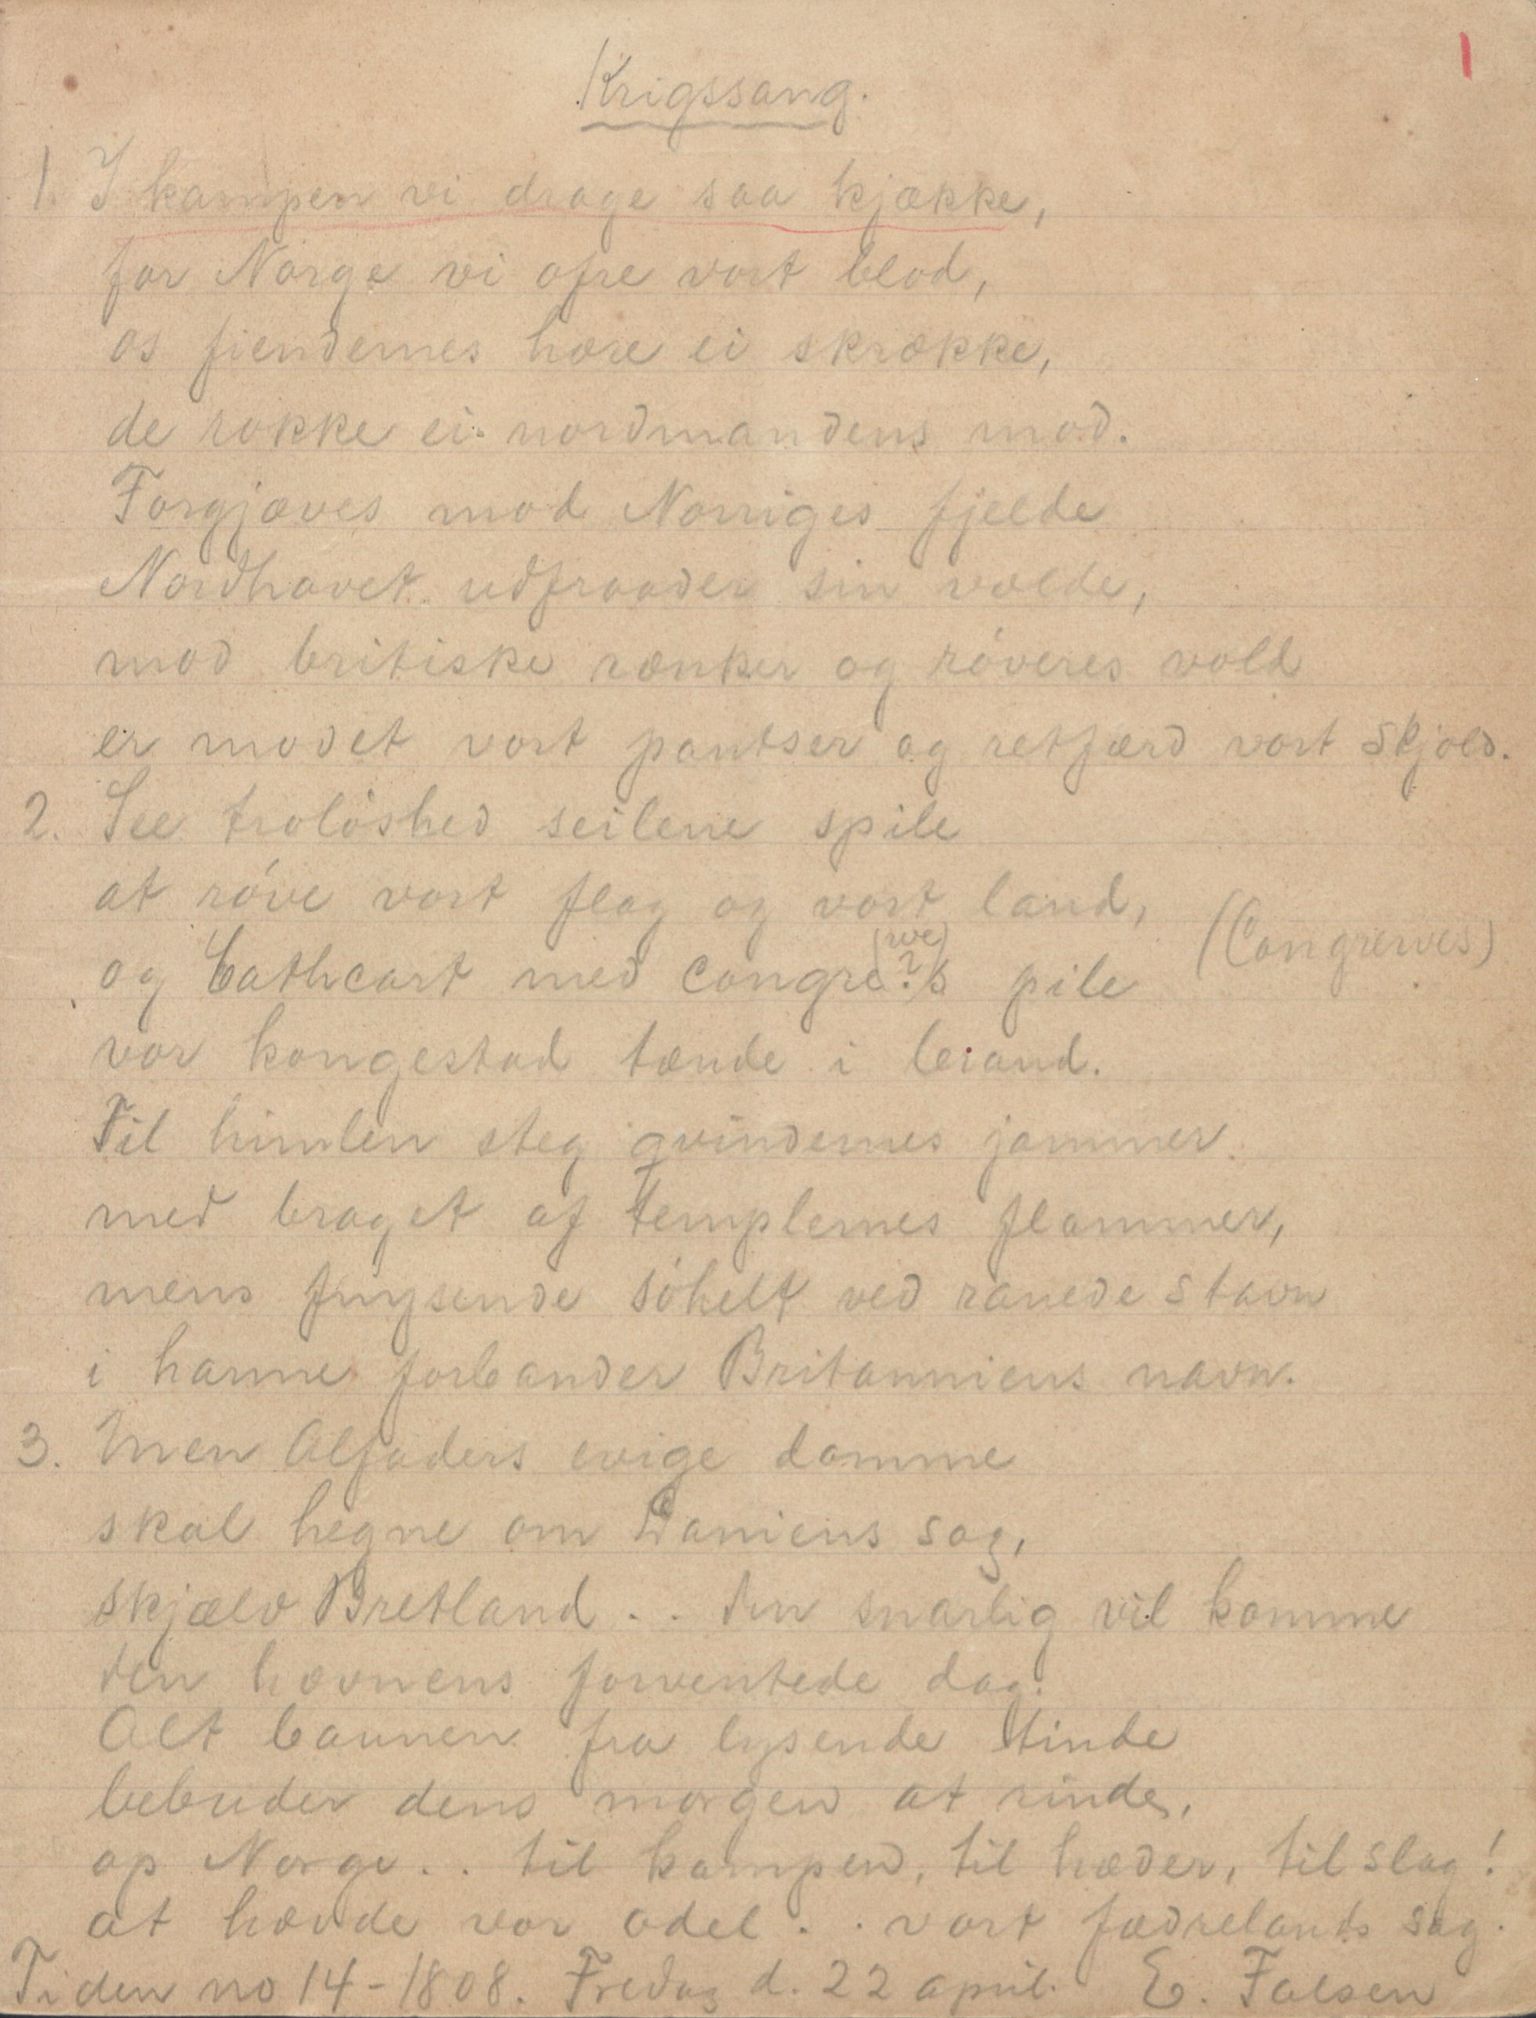 1
Krigssang.
1. I kampen vi drage saa kjække,
for Norge vi ofre vort blod,
os fiendernes hære ei skrække,
de rokke ei nordmandens mod.
Forgjæves mod Norriges fjelde
Nordhavet udfraader sin vælde,
mod britiske rænker og róveres vold
er modet vort pantser og retfærd vort skjold.
2. See trolóshed seilene spile
at róve vort flag og vort land,
(we) (Congrewes)
og Cathcart med Congre?s pile
vor kongestad tænde i brand.
Til himlen steg qvindernes jammer
med braget af templernes flammer,
mens fnysende sóhelt ved ranede stavn
i harme forbander Britanniens navn.
3. Men Alfaders evige domme
skal hegne om Daniens sag,
skjælv Bretland . . den snarlig vil komme
den hævnens forventede dag.
Alt baunen fra lysende tinde
bebuder dens morgen at rinde,
op Norge . . til kampen, til hæder, til slag!
at hævde vor odel . . vort fædrelands sag.
Tiden no 14 - 1808. Fredag d. 22 april. E. Falsen